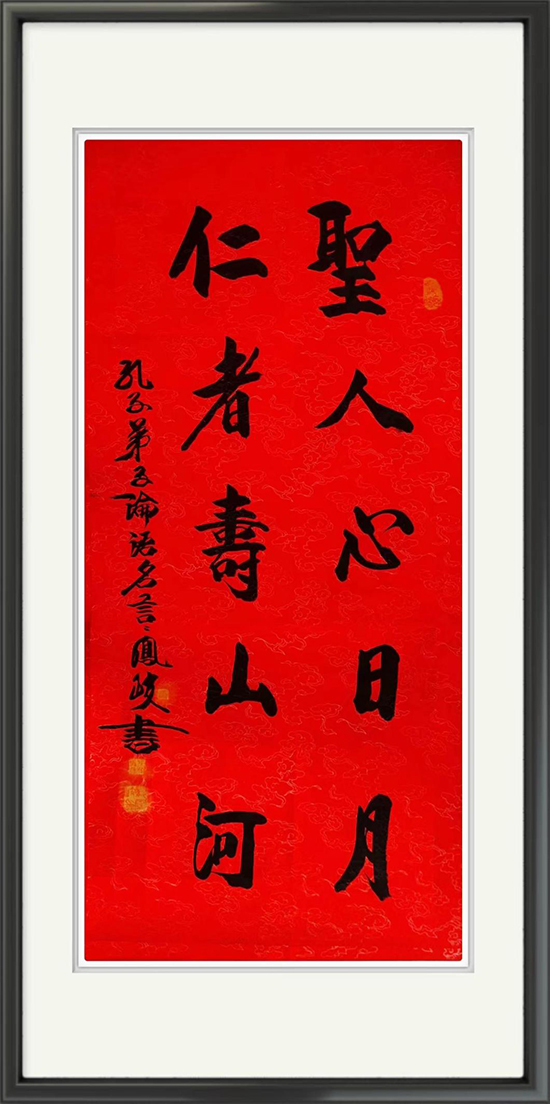 聖人心日月
仁者壽山河
孔子弟子論語名言鳳岐書